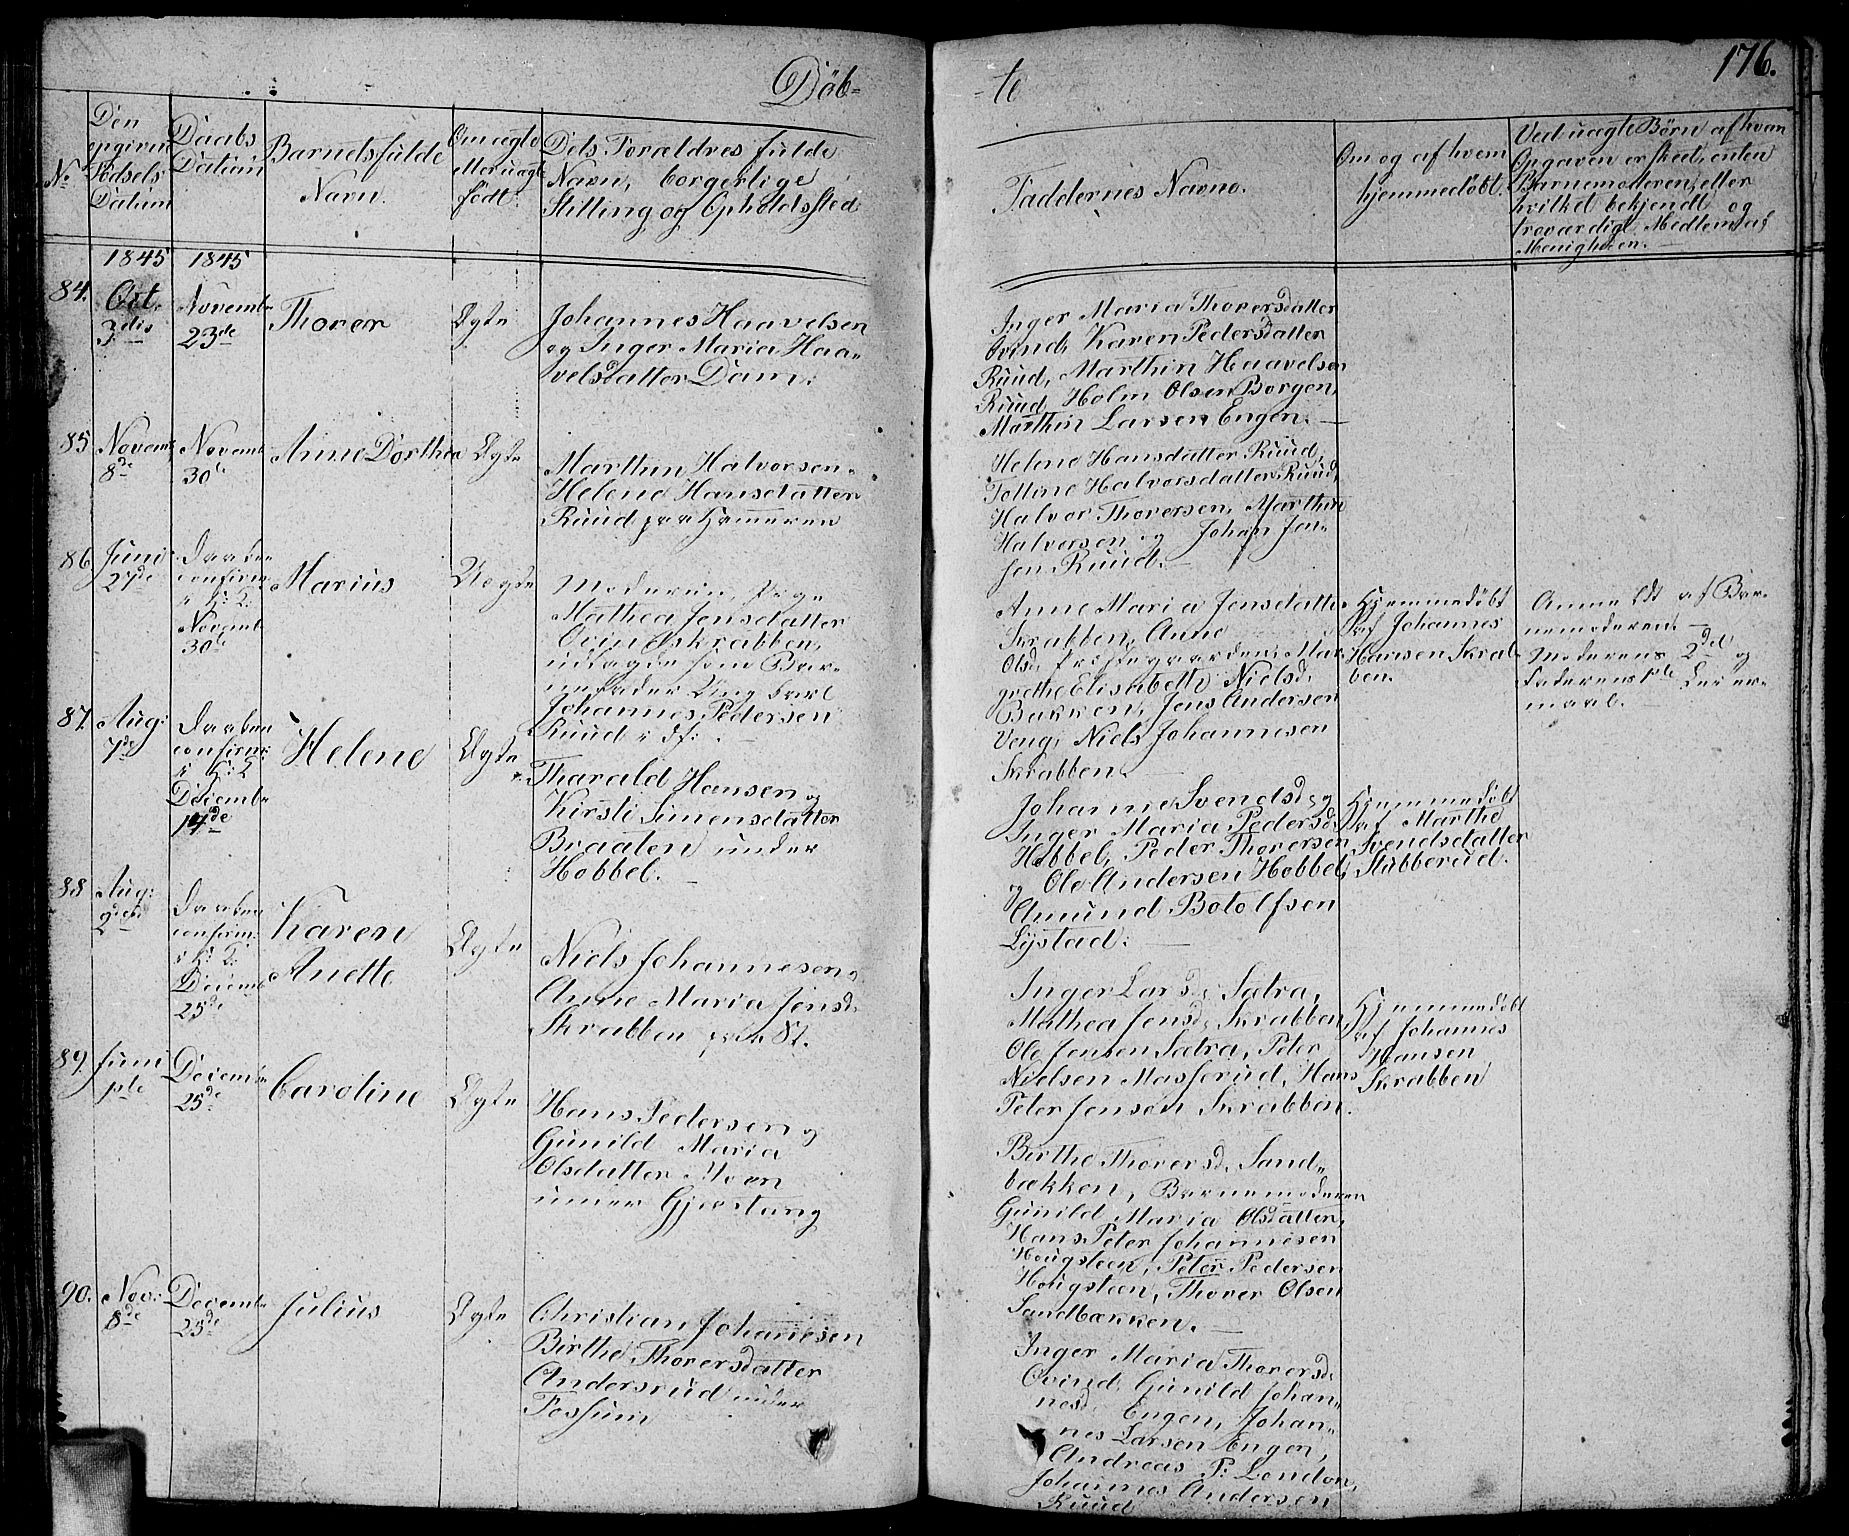 Döb=
-te
176.
No
Den
opgivne
Födsels
Datum
Daabs
Datum
Barnets fulde
Navn.
Om ægte
eller uægte
født.
Dets Forældres fulde
Navn, borgerlige
Stilling og Opholdssted
Faddernes Navne.
Om og af hvem
hjemmedøbt.
Ved uægte Børn af hvem
Opgaven er skeed, enten
Barnemoderen, eller
hvilket bekjendt og
troværdigt Medlem af
Menigheden.
1845
1845
84.
Oct.
3die
Novemb
23de
Thorer
Ægte
Johannes Haavelsen
og Inger Maria Haa=
velsdatter Dam.
Inger Maria Thorersdatter
Ovind, Karen Pedersdatter
Ruud, Marthin Haavelsen
Ruud, Holm Olsen Borgen,
Marthin Larsen Engen.
85
Novemb
8de
Novemb
30te
Anne Dorthea
Ægte
Marthin Halvorsen
Helene Hansdatter
Ruud paa Hammeren
Helene Hansdatter Ruud,
Tolline Halvorsdatter Ruud,
Halvor Thorersen, Marthin
Halvorsen og Johan Jen=
sen Ruud.
86
Juni
27de
Daaben
confirm:
i K: K:
Novemb
30te
Marius
Uægte
Moderen, Pige
Mathea Jensdatter
Ovindskrabben,
udlagde som Bar=
nefader Ungkarl
Johannes Pedersen
Ruud
Anne Maria Jensdatter
Skrabben, Anne
Olsd. Præstegaarden, Mar
grethe Elisabeth Nielsd.
Bakken, Jens Andersen
Veng, Niels Johannesen
Skrabben.
Hjemmedöbt
af Johannes
Hansen Skrab
ben.
Anmeldt af Bar=
nemoderen.
Moderens 2det og
Faderens 1ste Leier=
maal.
87.
Aug:
7de
Daaben
confirm:
i K: K
Decemb
14de
Helene
Ægte
Tharald Hansen og
Kirsti Simensdatter
Braaten under
Hobbel.
Johanne Svendsd. og
Inger Maria Pedersd.
Hobbel, Peder Thorersen
og Ole Andersen Hobbel,
Amund Botolfsen
Lystad.
Hjemmedöbt
af Marthe
Svendsdatter
Stubberud.
88
Aug:
2den
Daaben
confirm:
i K: K:
Decemb
25de
Karen
Anette
Ægte
Niels Johannesen og
Anne Maria Jensd.
Skrabben
Inger Larsd. Sætra,
Mathea Jensd. Skrabben
Ole Jensen Sætra, Peter
Nielsen Masserud, Hans
Peter Jensen Skrabben.
Hjemmedöbt
af Johannes
Hansen
Skrabben
89.
Juni
1ste
Decemb
25de
Caroline
Ægte
Hans Pedersen og
Gunild Maria
Olsdatter Moen
under Gjerstang
Birthe Thorersd. Sand=
bækken, Barnemoderen
Gunild Maria Olsdatter,
Hans Peter Johannesen
Hougsteen, Peter Pedersen
Hougsteen, Thorer Olsen
Sandbækken.
90.
Nov:
8de
Decemb
25de
Julius
Ægte
Christian Johanesen
Birthe Thorersdatter
Andersrud under
Fossum
Inger Maria Thorersd.
Ovind, Gunild Johan=
nesd. Engen, Johan=
nes Larsen Engen,
Andreas P: London,
Johannes Andersen
Ruud